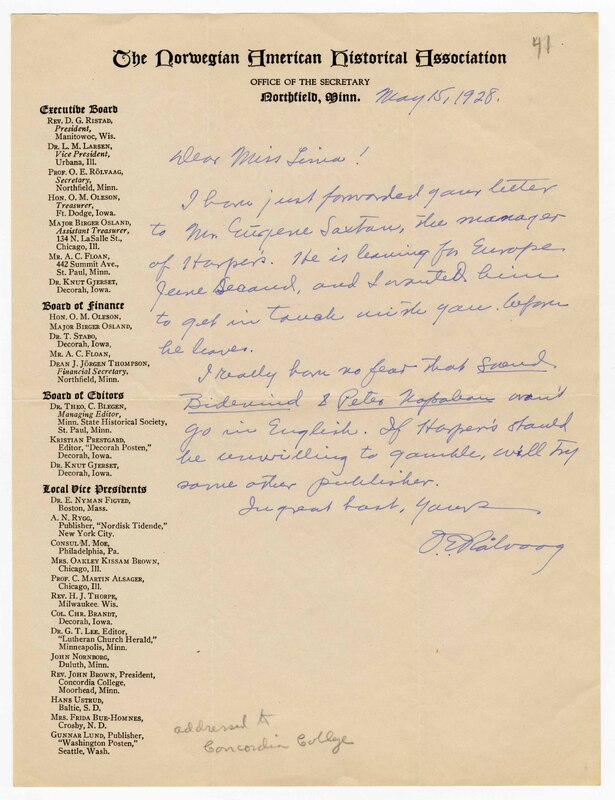 41
The Norwegian American Historical Association
OFFICE OF THE SECRETARY
Northfield, Minn. May 15, 1928.
Executive Board
REV. D. G. RISTAD,
President,
Manitowoc, Wis.
DR. L. M. LARSEN,
Vice President,
Urbana, Ill.
PROF. O. E. RÖLVAAG,
Secretary,
Northfield, Minn.
HON. O. M. OLESON,
Treasurer,
Ft. Dodge, Iowa.
MAJOR BIRGER OSLAND,
Assistant Treasurer,
134 N. LaSalle St.,
Chicago, Ill.
MR. A. C. FLOAN,
442 Summit Ave.,
St. Paul, Minn.
DR. KNUT GJERSET,
Decorah, Iowa.
Board of Finance
HON. O. M. OLESON,
MAJOR BIRGER OSLAND,
DR. T. STABO,
Decorah, Iowa,
MR. A. C. FLOAN,
DEAN J. JÖRGEN THOMPSON,
Financial Secretary,
Northfield, Minn.
Board of Editors
DR. THEO. C. BLEGEN,
Managing Editor,
Minn. State Historical Society,
St. Paul, Minn.
KRISTIAN PRESTGARD,
Editor, "Decorah Posten,"
Decorah, Iowa.
DR. KNUT GJERSET,
Decorah, Iowa.
Local Vice Presidents
DR. E. NYMAN FIGVED,
Boston, Mass.
A. N. RYGG,
Publisher, "Nordisk Tidende,"
New York City.
CONSUL M. MOE,
Philadelphia, Pa.
MRS. OAKLEY KISSAM BROWN,
Chicago, Ill.
PROF. C. MARTIN ALSAGER,
Chicago, Ill.
REV. H. J. THORPE,
Milwaukee. Wis.
COL. CHR. BRANDT,
Decorah, Iowa.
DR. G. T. LEE, Editor,
"Lutheran Church Herald,"
Minneapolis, Minn.
JOHN NORNBORG,
Duluth, Minn.
REV. JOHN BROWN, President,
Concordia College,
Moorhead, Minn.
HANS USTRUD,
Baltic, S. D.
MRS. FRIDA BUE-HOMNES,
Crosby, N. D.
GUNNAR LUND, Publisher,
"Washington Posten,"
Seattle, Wash.
Dear Miss Lima!
I have just forwarded your letter
to Mr. Eugene Saxton, the manager
of Harper's. He is leaving for Europe
June Second, and I wanted him
to get in touch with you before
he leaves.
I really have no fear that Svend
Bidevind & Peter Napoleon won't
go in English. If Harper's should
be unwilling to gamble, will try
some other publisher.
In great hast, Yours
O. E. Rölvaag
addressed to
Concordia College